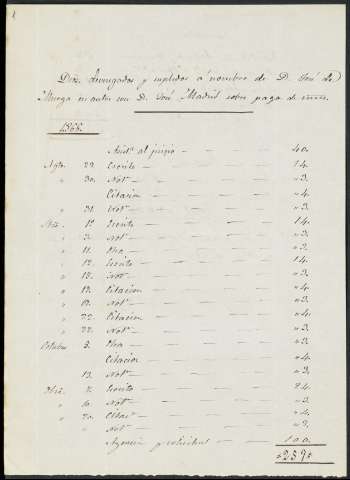 Dros. devengados y suplidos á nombre de D. José de
Murga en autos con D. José Madril sobre pago de
1866.
Autos al juicio — 40.
Agto. 29. Escrito — 14.
" 30. Notn. — " 3.
Citacion — " 4.
" 31. Notn. — " 3.
Stre. 1º Escrito — 14.
" 3. Notn. — " 3.
" 11. Otra — " 3.
" 12. Escrito — 14.
" 13. Notn. — " 3.
" 19. Citacion — " 4.
" 19. Notn. — " 3.
" 22. Citacion — " 4.
" 22. Notn. — " 3.
Octubre 9. Otra — " 3.
Citacion — " 4.
" 13. Notn. — " 3.
Escrito — 24.
" Notn. — " 3.
" 20. Citacn. — " 4.
" Notn. — " 3.
Agencia y solicitud — 100.